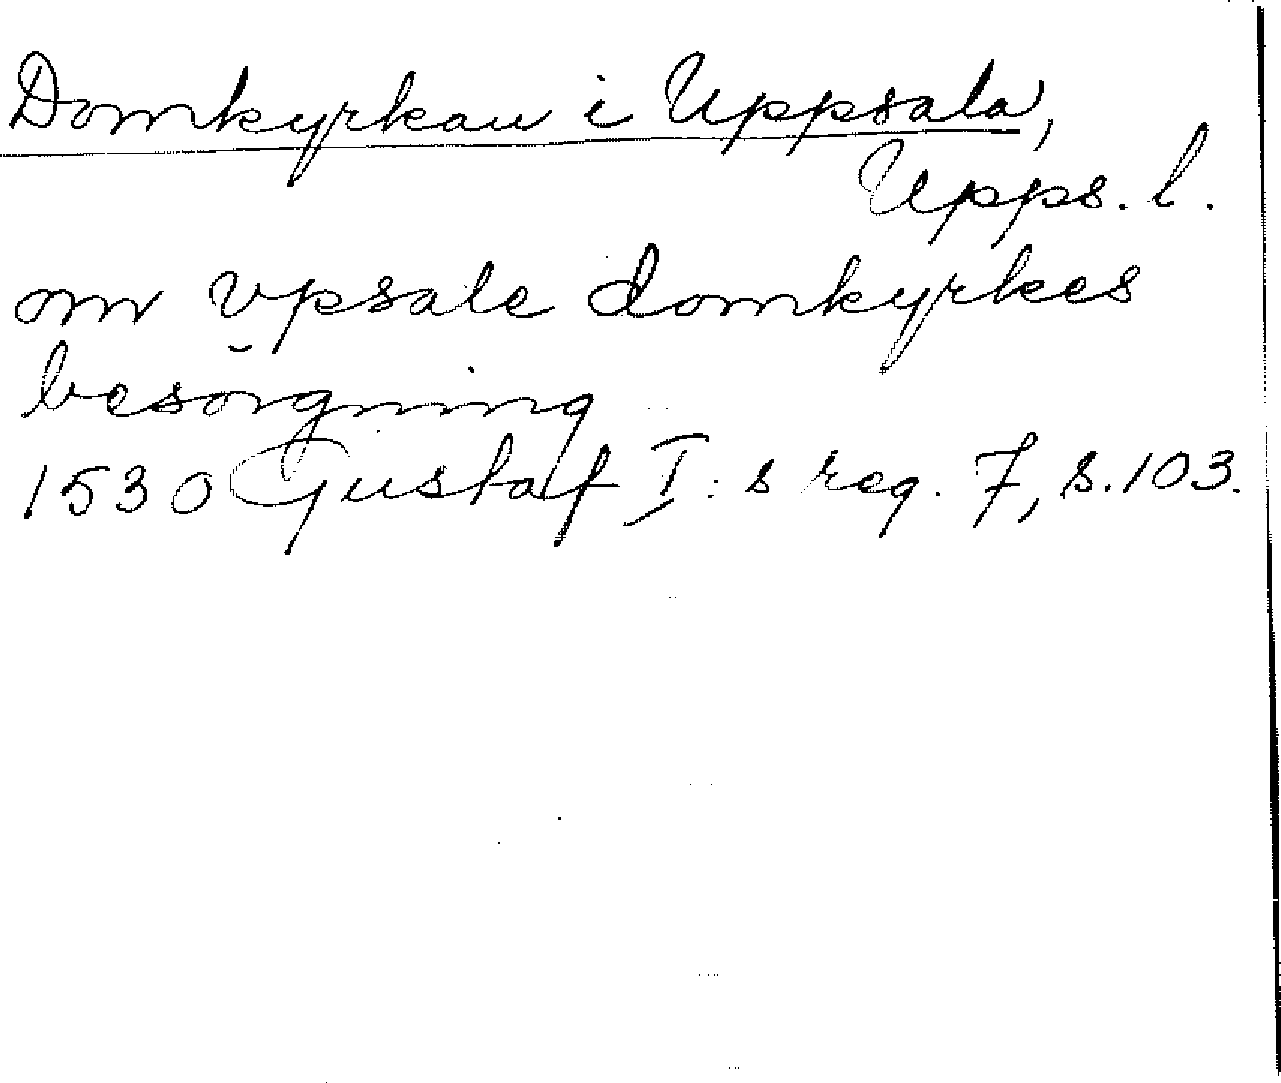 Domkyrkan i Uppsala,
Upps. l.
om vpsale domkyrkes
besörgning
1530 Gustaf I:s reg. 7, s. 103.